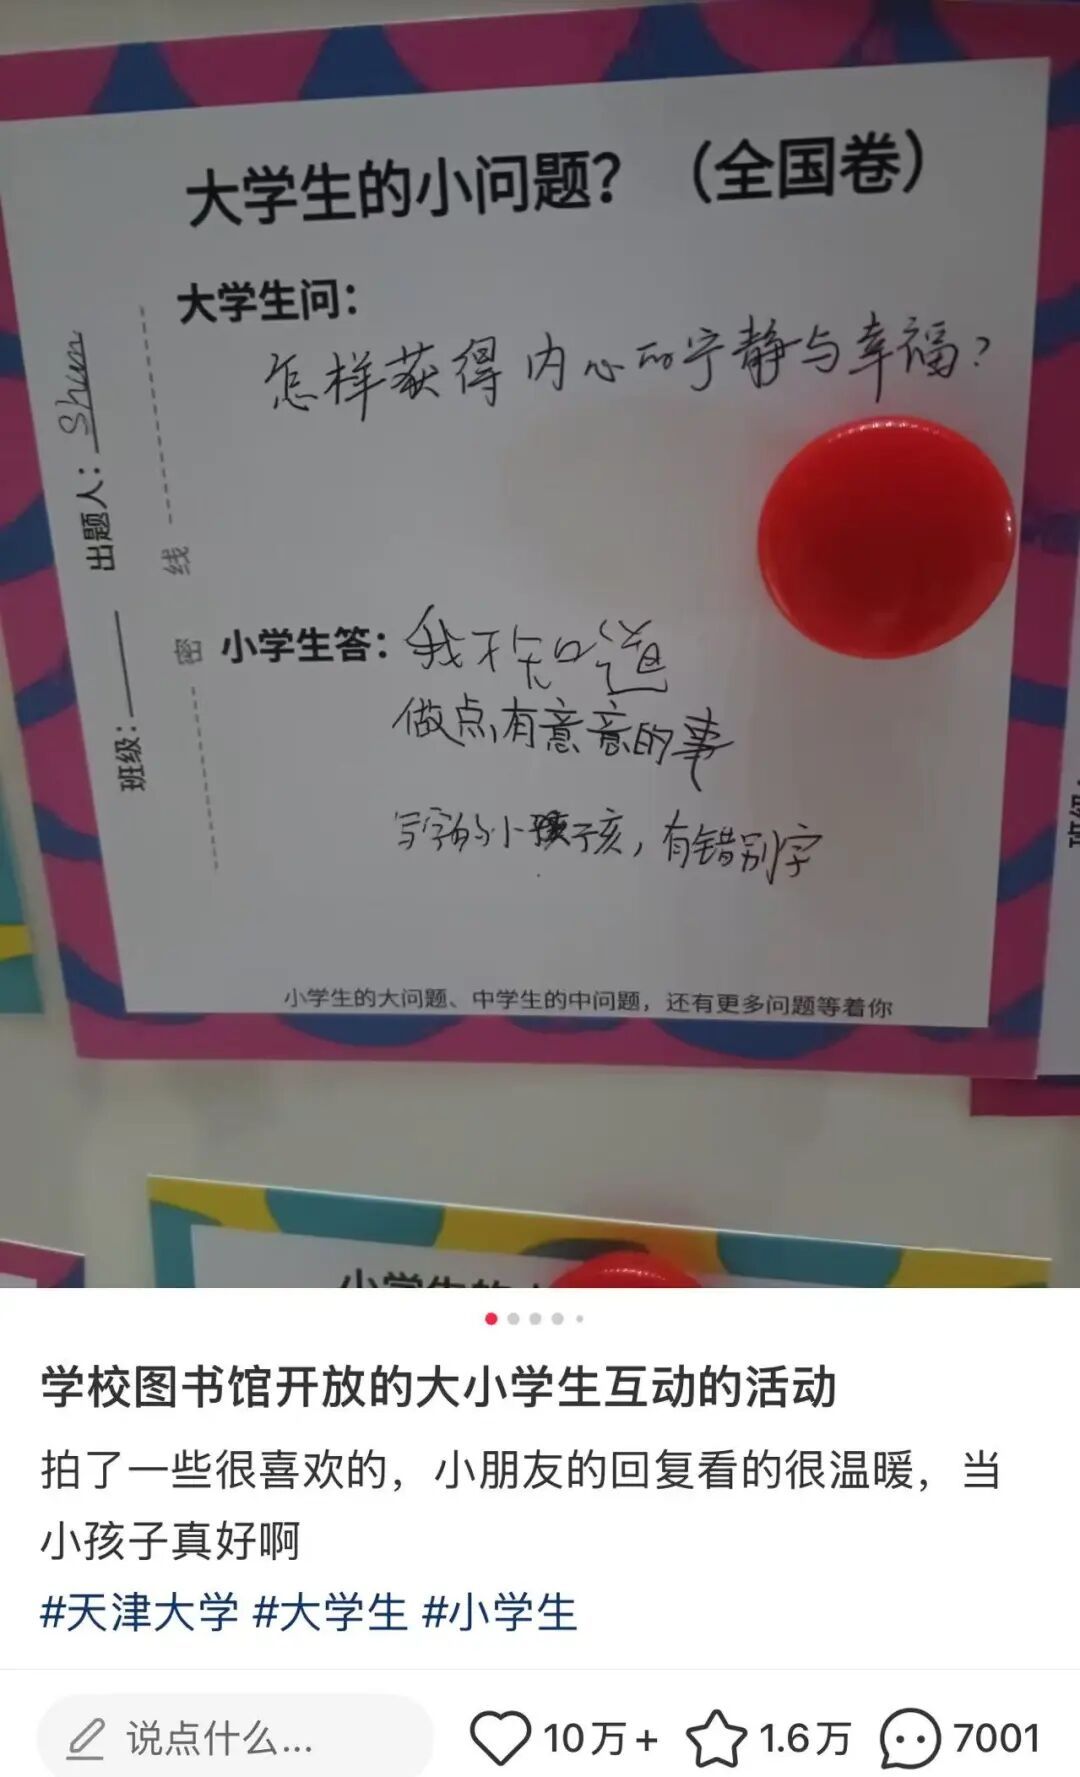 大学生的小问题？（全国卷）
大学生问：
怎样获得内心的宁静与幸福？
出题人：Shun
班级：
密 线
小学生答：我不知道
做点有意意的事
写字的小孩，有错别字
小学生的大问题、中学生的中问题，还有更多问题等着你
学校图书馆开放的大小学生互动的活动
拍了一些很喜欢的，小朋友的回复看的很温暖，当
小孩子真好啊
#天津大学 #大学生 #小学生
说点什么... 10万+ 1.6万 7001